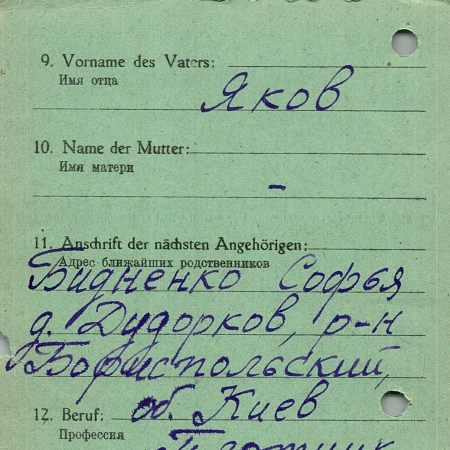 9. Vorname des Vaters:
Имя отца
Яков
10. Name der Mutter:
Имя матери
-
11. Anschrift der nächsten Angehörigen:
Адрес ближайших родственников
Бидненко Софья
д. Дудорков, р-н
Бориспольский,
12. Beruf: об. Киев
Профессия
Плотник